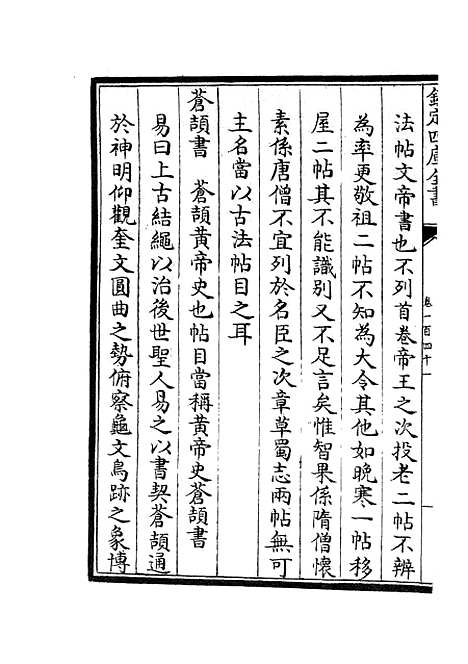 欽定四庫全書
卷一百四十一
法帖文帝書也不列首卷帝王之次投老二帖不辨
為率更敬祖二帖不知為大令其他如晚寒一帖移
屋二帖其不能識別又不足言矣惟智果係隋僧懷
素係唐僧不宜列於名臣之次章草蜀志兩帖無可
主名當以古法帖目之耳
蒼頡書　蒼頡黃帝史也帖目當稱黃帝史蒼頡書
易曰上古結繩以治後世聖人易之以書契蒼頡通
於神明仰觀奎文圓曲之勢俯察龜文鳥跡之象博